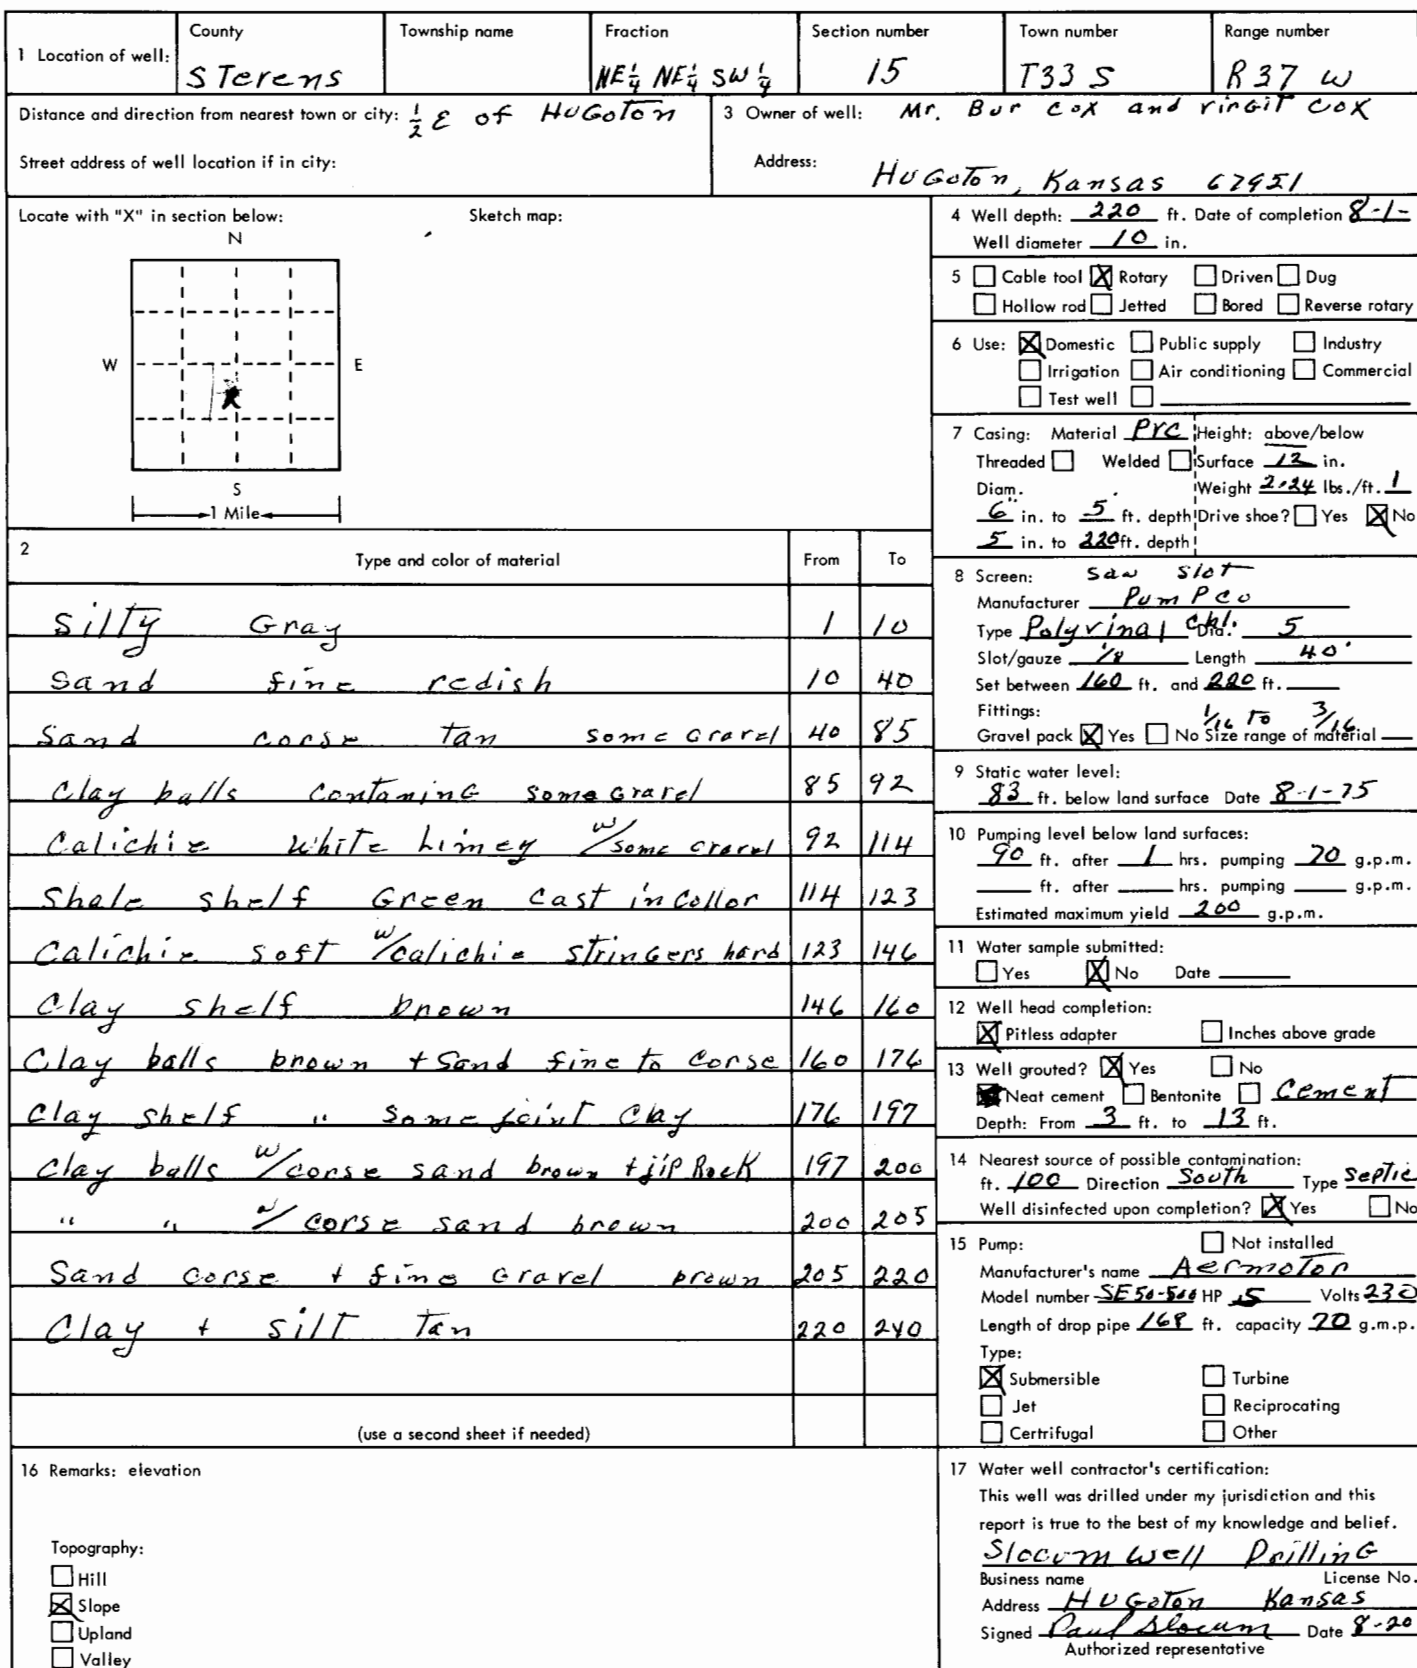 1 Location of well: County Township name Fraction Section number Town number Range number
STevens NE¼ NE¼ SW¼ 15 T33 S R37 W
Distance and direction from nearest town or city: ½ E of HuGoton
3 Owner of well: Mr. Bur Cox and Virgil Cox
Street address of well location if in city:
Address: HuGoton, Kansas 67951
Locate with "X" in section below: Sketch map:
N
W E
S
1 Mile
X
4 Well depth: 220 ft. Date of completion 8-1-
Well diameter 10 in.
5 Cable tool X Rotary Driven Dug
Hollow rod Jetted Bored Reverse rotary
6 Use: X Domestic Public supply Industry
Irrigation Air conditioning Commercial
Test well
7 Casing: Material PVC Height: above/below
Threaded Welded Surface 12 in.
Diam. Weight 2.24 lbs./ft. 1
6" in. to 5' ft. depth Drive shoe? Yes X No
5 in. to 220 ft. depth
8 Screen: Saw Slot
Manufacturer PumPco
Type Polyvinal Chl. Dia. 5
Slot/gauze 1/8 Length 40'
Set between 160 ft. and 220 ft.
Fittings: 1/16 To 3/16
Gravel pack X Yes No Size range of material
9 Static water level:
83 ft. below land surface Date 8-1-75
10 Pumping level below land surfaces:
90 ft. after 1 hrs. pumping 20 g.p.m.
ft. after hrs. pumping g.p.m.
Estimated maximum yield 200 g.p.m.
11 Water sample submitted:
Yes X No Date
12 Well head completion:
X Pitless adapter Inches above grade
13 Well grouted? X Yes No
Neat cement Bentonite Cement
Depth: From 3 ft. to 13 ft.
14 Nearest source of possible contamination:
ft. 100 Direction South Type Septic
Well disinfected upon completion? X Yes No
15 Pump: Not installed
Manufacturer's name Aermotor
Model number SE50-500 HP .5 Volts 230
Length of drop pipe 168 ft. capacity 20 g.m.p.
Type:
X Submersible Turbine
Jet Reciprocating
Certrifugal Other
2 Type and color of material From To
Silty Gray 1 10
Sand fine redish 10 40
Sand corse tan some Gravel 40 85
Clay balls contaminG some Gravel 85 92
Calichie White Limey w/some Gravel 92 114
Shale shelf Green cast in Collor 114 123
Calichie soft w/calichie strinGers hard 123 146
Clay shelf brown 146 160
Clay balls brown + Sand fine to corse 160 176
Clay shelf " some joint Clay 176 197
Clay balls w/corse sand brown + jip Rock 197 200
" " w/ corse sand brown 200 205
Sand corse + fine Gravel brown 205 220
Clay + silt Tan 220 240
(use a second sheet if needed)
16 Remarks: elevation
Topography:
Hill
X Slope
Upland
Valley
17 Water well contractor's certification:
This well was drilled under my jurisdiction and this
report is true to the best of my knowledge and belief.
Slocum Well DrillinG
Business name License No.
Address HUGoton Kansas
Signed Paul Slocum Date 8-20
Authorized representative